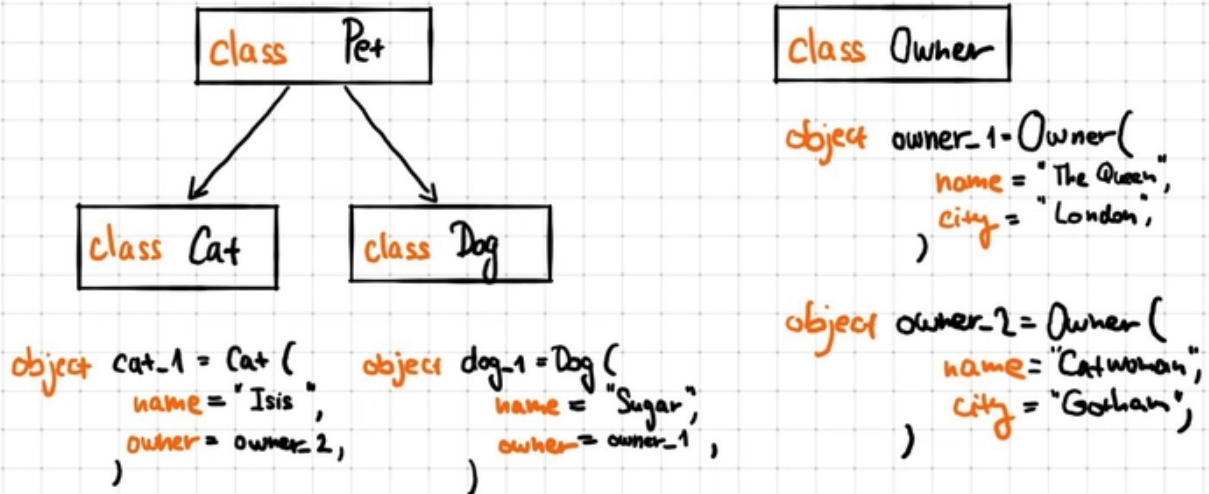 class Pet
class Owner
class Cat
class Dog
object cat_1 = Cat (
name = "Isis",
owner = owner_2,
)
object dog_1 = Dog (
name = "Sugar",
owner = owner_1,
)
object owner_1 = Owner(
name = "The Queen",
city = "London",
)
object owner_2 = Owner (
name = "Catwoman",
city = "Gotham",
)